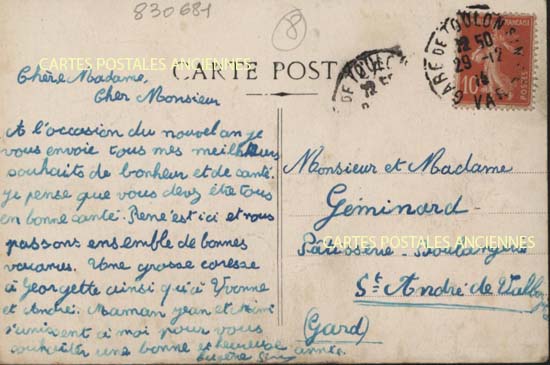 830681
8
CARTES POSTALES ANCIENNES
CARTE POSTALE
GARE DE TOULON
22 50
29 - 12
VAR
10
POSTES
Chère Madame,
Cher Monsieur
A l'occasion du nouvel an je
vous envoie tous mes meilleurs
souhaits de bonheur et de santé.
Je pense que vous devez être tous
en bonne santé. René est ici et nous
passons ensemble de bonnes
vacances. Une grosse caresse
à Georgette ainsi qu'à Yvonne
et André. Maman Jean et Mimi
s'unissent à moi pour vous
souhaiter une bonne et heureuse année.
Monsieur et Madame
Géminard
CARTES POSTALES ANCIENNES
Pâtisserie - Boulangerie
St André de Valborgne
(Gard)